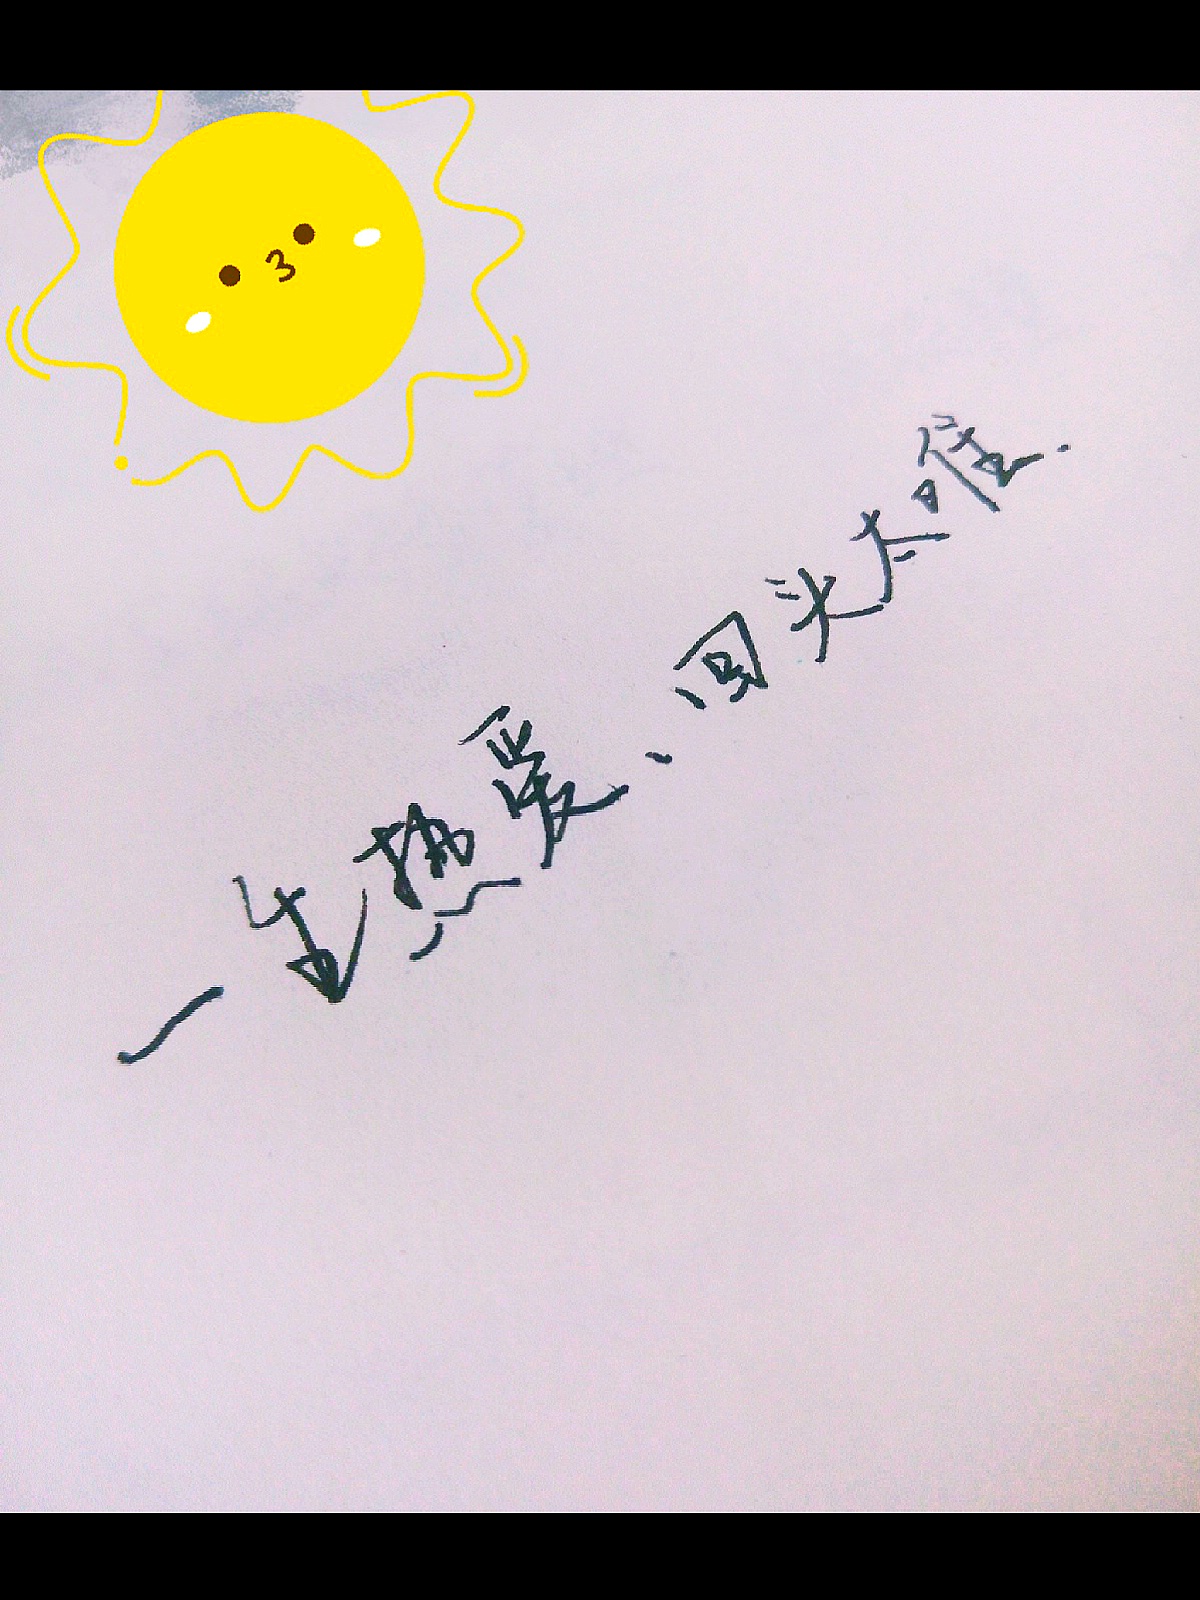 一生热爱、回头太难.